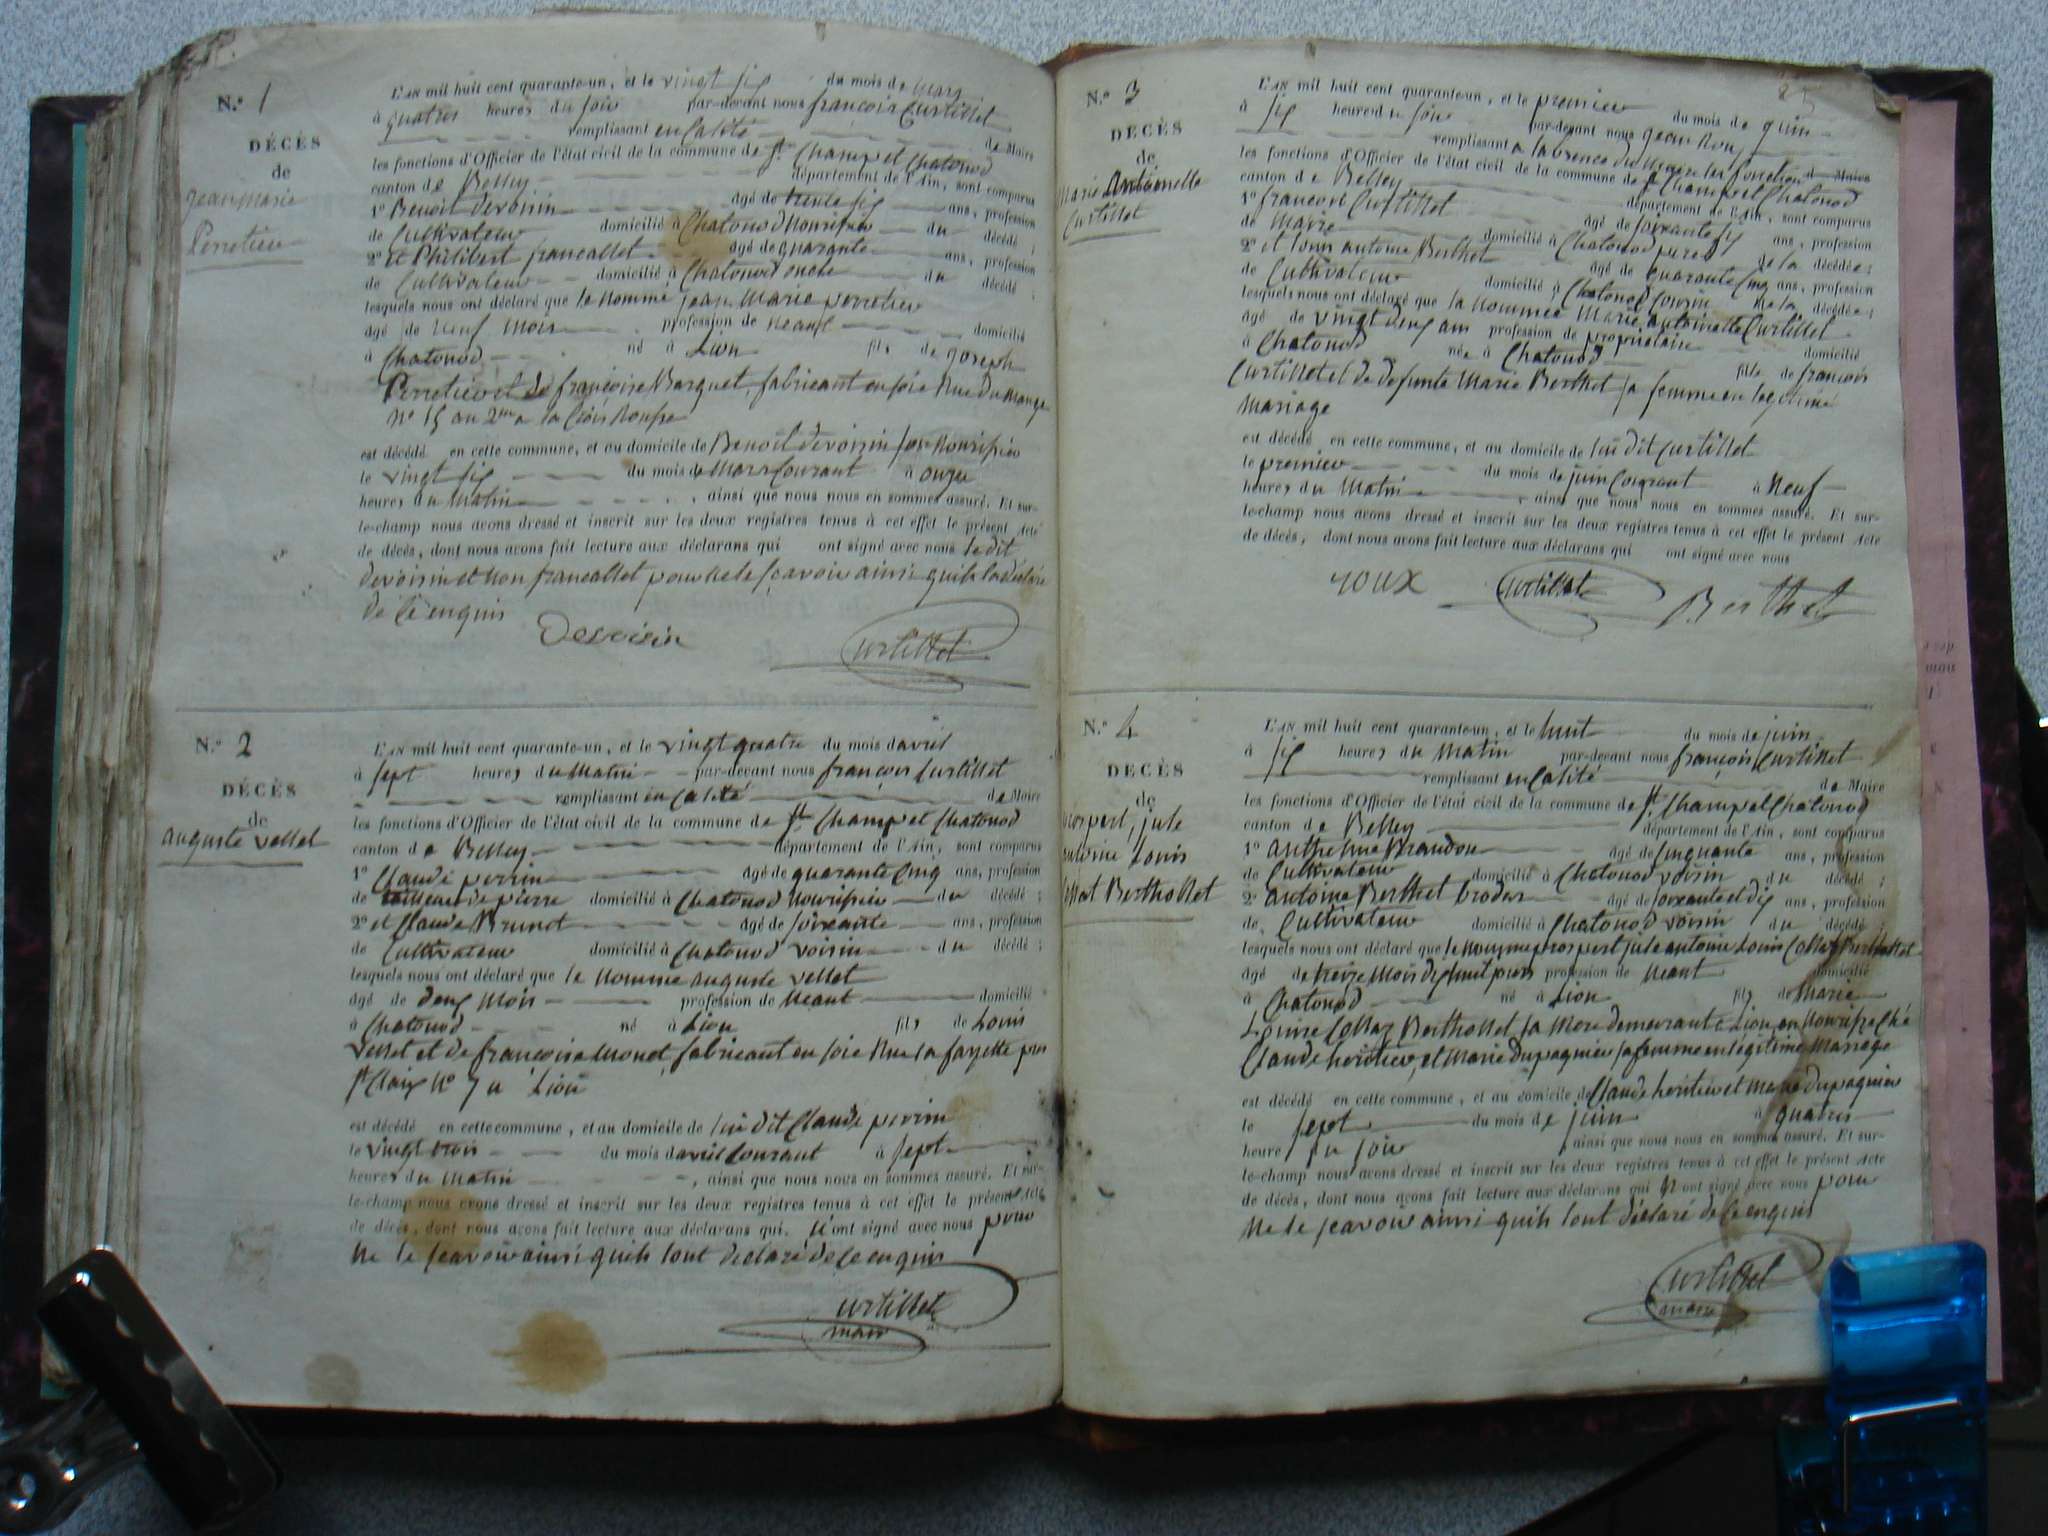 N.° 1
DÉCÈS
de
jean marie
Perretier
L'AN mil huit cent quarante-un, et le vingt six du mois de mars
à quatres heures du soir par-devant nous françois Curtillet
remplissant en calité de Maire
les fonctions d'Officier de l'état civil de la commune de St Champ et Chatonod
canton de Belley département de l'Ain, sont comparus
1° Benoit devoisin âgé de trente six ans, profession
de Cultivateur domicilié à Chatonod Nourisier du décédé;
2° et Philibert francallet âgé de quarante ans, profession
de Cultivateur domicilié à Chatonod oncle du décédé;
lesquels nous ont déclaré que le Nommé jean Marie perretier
âgé de neuf mois profession de neant domicilié
à Chatonod né à Lion fils de joseph
Perretier et de françoise Barquet, fabricant en soie Rue du Mange
N° 15 au 2me a la Croix Rousse
est décédé en cette commune, et au domicile de Benoit devoisin son Nourisier
le vingt six du mois de Mars Courant à onze
heures du Matin, ainsi que nous nous en sommes assuré. Et sur-
le-champ nous avons dressé et inscrit sur les deux registres tenus à cet effet le présent Acte
de décès, dont nous avons fait lecture aux déclarans qui ont signé avec nous le dit
devoisin et Non francallet pour ne le sçavoir ainsi quil la déclare
de Ce enquis
Devoisin Curtillet
N.° 2
DÉCÈS
de
auguste vellet
L'AN mil huit cent quarante-un, et le vingt quatre du mois d avril
à sept heures du Matin par-devant nous françois Curtillet
remplissant en calité de Maire
les fonctions d'Officier de l'état civil de la commune de St Champ et Chatonod
canton de Belley département de l'Ain, sont comparus
1° Claude perrin âgé de quarante Cinq ans, profession
de tailleur de pierre domicilié à Chatonod Nourisier du décédé;
2° et Claude Brunot âgé de soixante ans, profession
de Cultivateur domicilié à Chatonod voisin du décédé;
lesquels nous ont déclaré que le Nommé auguste vellet
âgé de deux Mois profession de Neant domicilié
à Chatonod né à Lion fils de Louis
vellet et de françoise Monet, fabricant en soie Rue la fayette pres
St Clair N° 7 a Lion
est décédé en cette commune, et au domicile de lui dit Claude perrin
le vingt trois du mois d avril Courant à sept
heures du Matin, ainsi que nous nous en sommes assuré. Et sur-
le-champ nous avons dressé et inscrit sur les deux registres tenus à cet effet le présent Acte
de décès, dont nous avons fait lecture aux déclarans qui n'ont signé avec nous pour
Ne le sçavoir ainsi quils lont declaré de Ce enquis
Curtillet
maire
25
N.° 3
DÉCÈS
de
Marie Antoinette
Curtillet
L'AN mil huit cent quarante-un, et le premier du mois de juin
à six heures du soir par-devant nous jean Roux
remplissant a labsence du Maire les fonction de Maire
les fonctions d'Officier de l'état civil de la commune de St Champ et Chatonod
canton de Belley département de l'Ain, sont comparus
1° francois Curtillet âgé de soixante six ans, profession
de Maire domicilié à Chatonod pere de la décédée;
2° et louis antoine Berthet âgé de quarante Cinq ans, profession
de Cultivateur domicilié à Chatonod Cousin de la décédée;
lesquels nous ont déclaré que la Nommée Marie antoinette Curtillet
âgé de vingt deux ans profession de propriétaire domicilié
à Chatonod née à Chatonod fille de francois
Curtillet et de defunte Marie Berthet sa femme en legitime
Mariage
est décédé en cette commune, et au domicile de lui dit Curtillet
le premier du mois de juin Courant à Neuf
heures du Matin, ainsi que nous nous en sommes assuré. Et sur-
le-champ nous avons dressé et inscrit sur les deux registres tenus à cet effet le présent Acte
de décès, dont nous avons fait lecture aux déclarans qui ont signé avec nous
roux Curtillet Berthet
N.° 4
DÉCÈS
de
prospert, jule
antoine Louis
Collat Berthollet
L'AN mil huit cent quarante-un, et le huit du mois de juin
à six heures du Matin par-devant nous françois Curtillet
remplissant en Calité de Maire
les fonctions d'Officier de l'état civil de la commune de St Champ et Chatonod
canton de Belley département de l'Ain, sont comparus
1° anthelme Brandon âgé de Cinquante ans, profession
de Cultivateur domicilié à Chatonod voisin du décédé;
2° antoine Berthet âgé de soixante et dix ans, profession
de Cultivateur domicilié à Chatonod voisin du décédé
lesquels nous ont déclaré que le Nommé prospert jule antoine Louis Collat Berthollet
âgé de treize Mois dix huit jours profession de Neant domicilié
à Chatonod né à Lion fils de Marie
Louise Collat Berthollet sa Mere demeurante a Lion en Nourisse Ché
Claude heritier, et Marie Dupasquier sa femme en legitime Mariage
est décédé en cette commune, et au domicile de Claude heritier et Marie Dupasquier
le sept du mois de juin à quatres
heures du soir ainsi que nous nous en sommes assuré. Et sur-
le-champ nous avons dressé et inscrit sur les deux registres tenus à cet effet le présent Acte
de décès, dont nous avons fait lecture aux déclarans qui N'ont signé avec nous pour
Ne le sçavoir ainsi quils lont déclaré de Ce enquis
Curtillet
maire